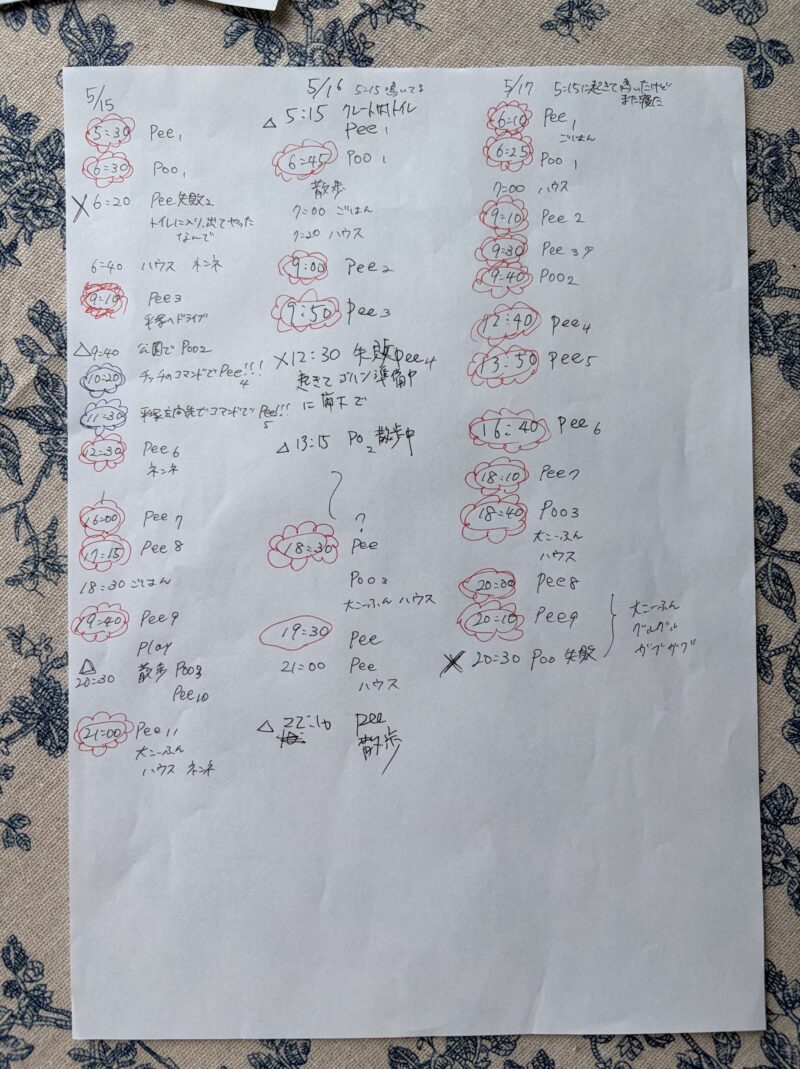 5/15
5:30 Pee 1
6:30 Poo 1
X 6:20 Pee 失敗 2
トイレに入り、出てやった
なんで
6:40 ハウス ネンネ
9:10 Pee 3
平塚へドライブ
△ 9:40 公園で Poo 2
10:20 チッチのコマンドで Pee!!! 4
11:30 平塚玄関先でコマンドで Pee!!! 5
12:30 Pee 6
ネンネ
16:00 Pee 7
17:15 Pee 8
18:30 ごはん
19:40 Pee 9
Play
△ 20:30 散歩 Poo 3
Pee 10
21:00 Pee 11
大こーふん
ハウス ネンネ
5/16 5:15 鳴いてる
△ 5:15 クレート内トイレ
Pee 1
6:45 Poo 1
散歩
7:00 ごはん
7:20 ハウス
9:00 Pee 2
9:50 Pee 3
X 12:30 失敗 Pee 4
起きて ゴハン 準備中
に 廊下で
△ 13:15 Po 2 散歩中
?
18:30 Pee
Poo 3
大こーふん ハウス
19:30 Pee
21:00 Pee
ハウス
△ 22:10 Pee
散歩
5/17 5:15に起きて鳴いたけど
また寝た
6:10 Pee 1
ごはん
6:25 Poo 1
7:00 ハウス
9:10 Pee 2
9:30 Pee 3
9:40 Poo 2
12:40 Pee 4
13:50 Pee 5
16:40 Pee 6
18:10 Pee 7
18:40 Poo 3
大こーふん
ハウス
20:00 Pee 8
20:10 Pee 9
X 20:30 Poo 失敗
大こーふん
グルグル
ガブガブ